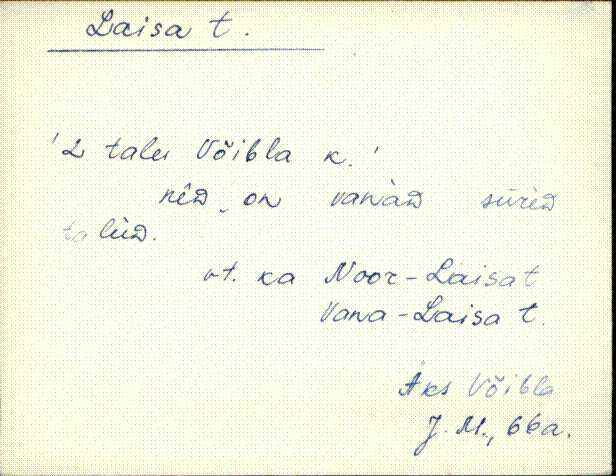 Laisa t.
'2 talu Võibla k.'
nêD on vanàD sūrèD
talùD.
vt. ka Noor-Laisa t
Vana-Laisa t.
Äks Võibla
J. M., 66a.